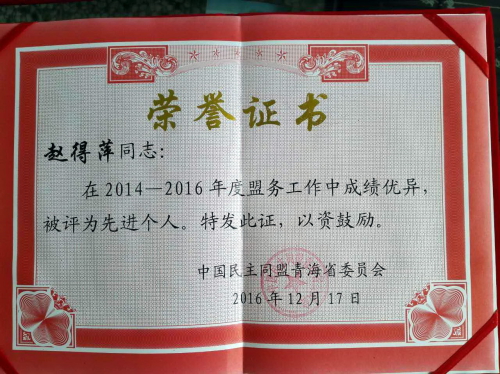 荣誉证书
赵得萍同志：
在2014—2016年度盟务工作中成绩优异，
被评为先进个人。特发此证，以资鼓励。
中国民主同盟青海省委员会
2016年12月17日